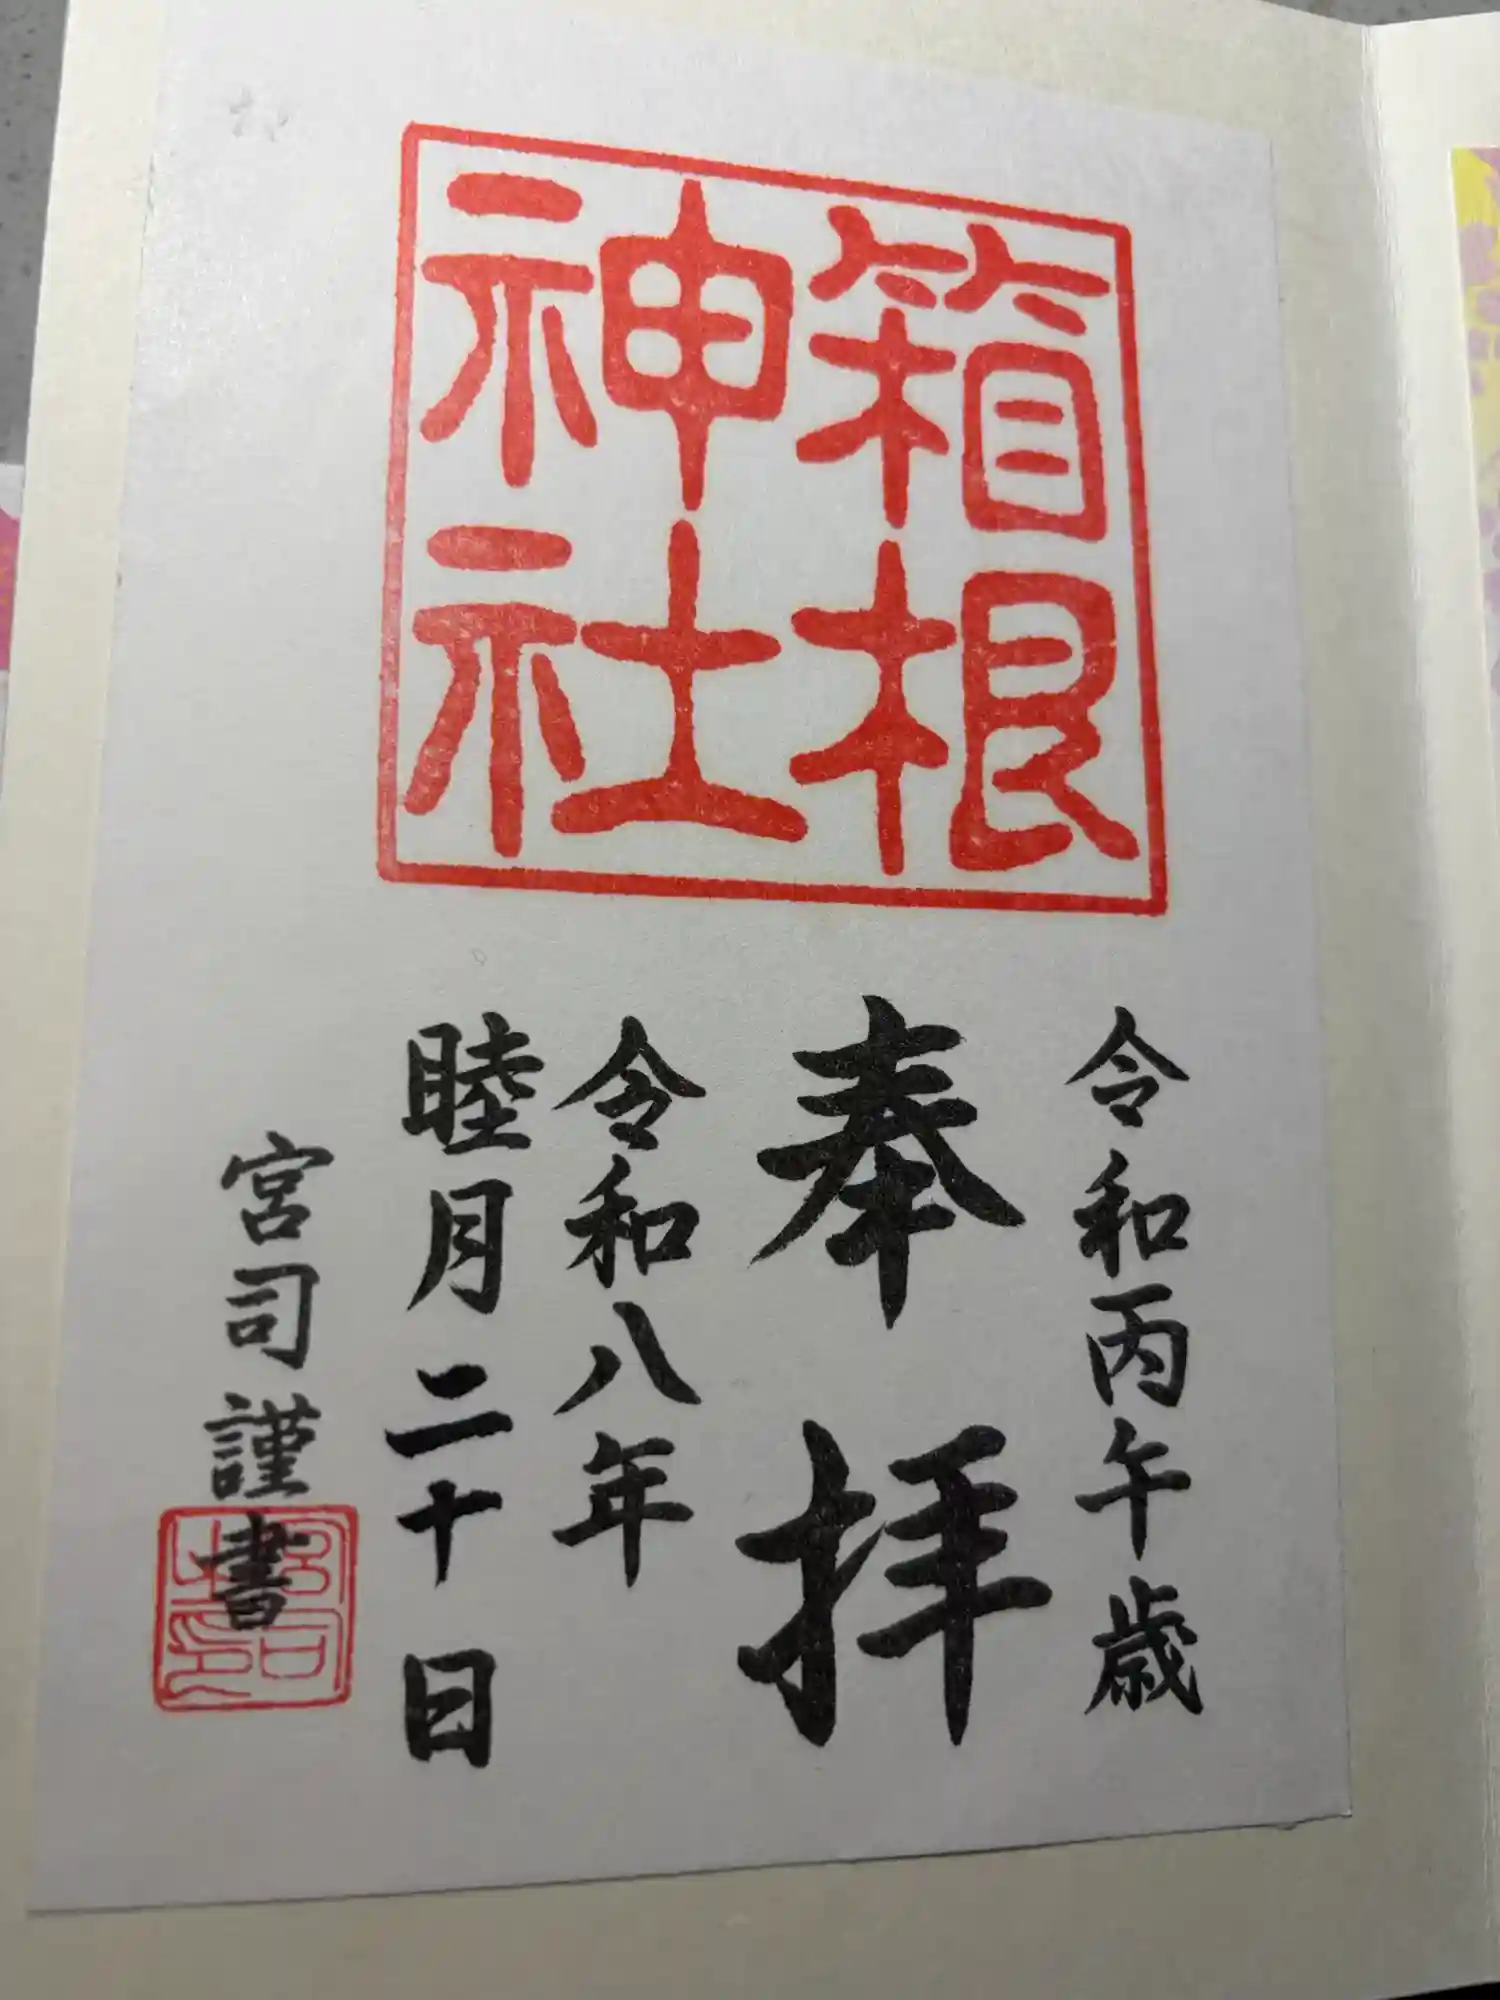 箱根
神社
令和丙午歳
奉拝
令和八年
睦月二十日
宮司謹書
宮司之印